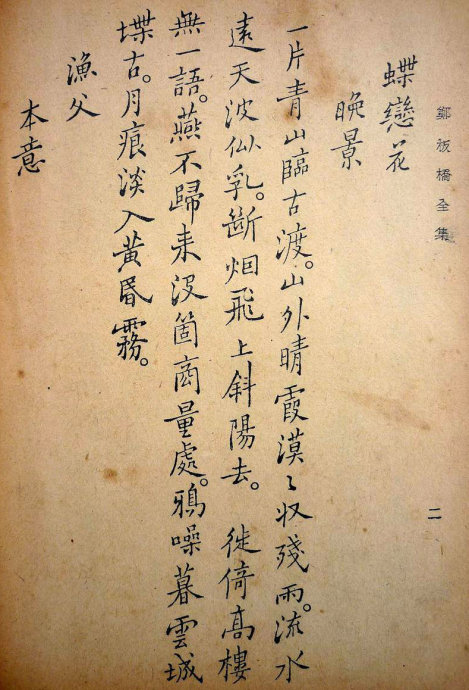 鄭板橋全集
二
蝶戀花
晚景
一片青山臨古渡。山外晴霞漠〻收殘雨。流水
遠天波似乳。斷烟飛上斜陽去。 徙倚高樓
無一語。燕不歸来没箇商量處。鴉噪暮雲城
堞古。月痕淡入黃昏霧。
漁父
本意